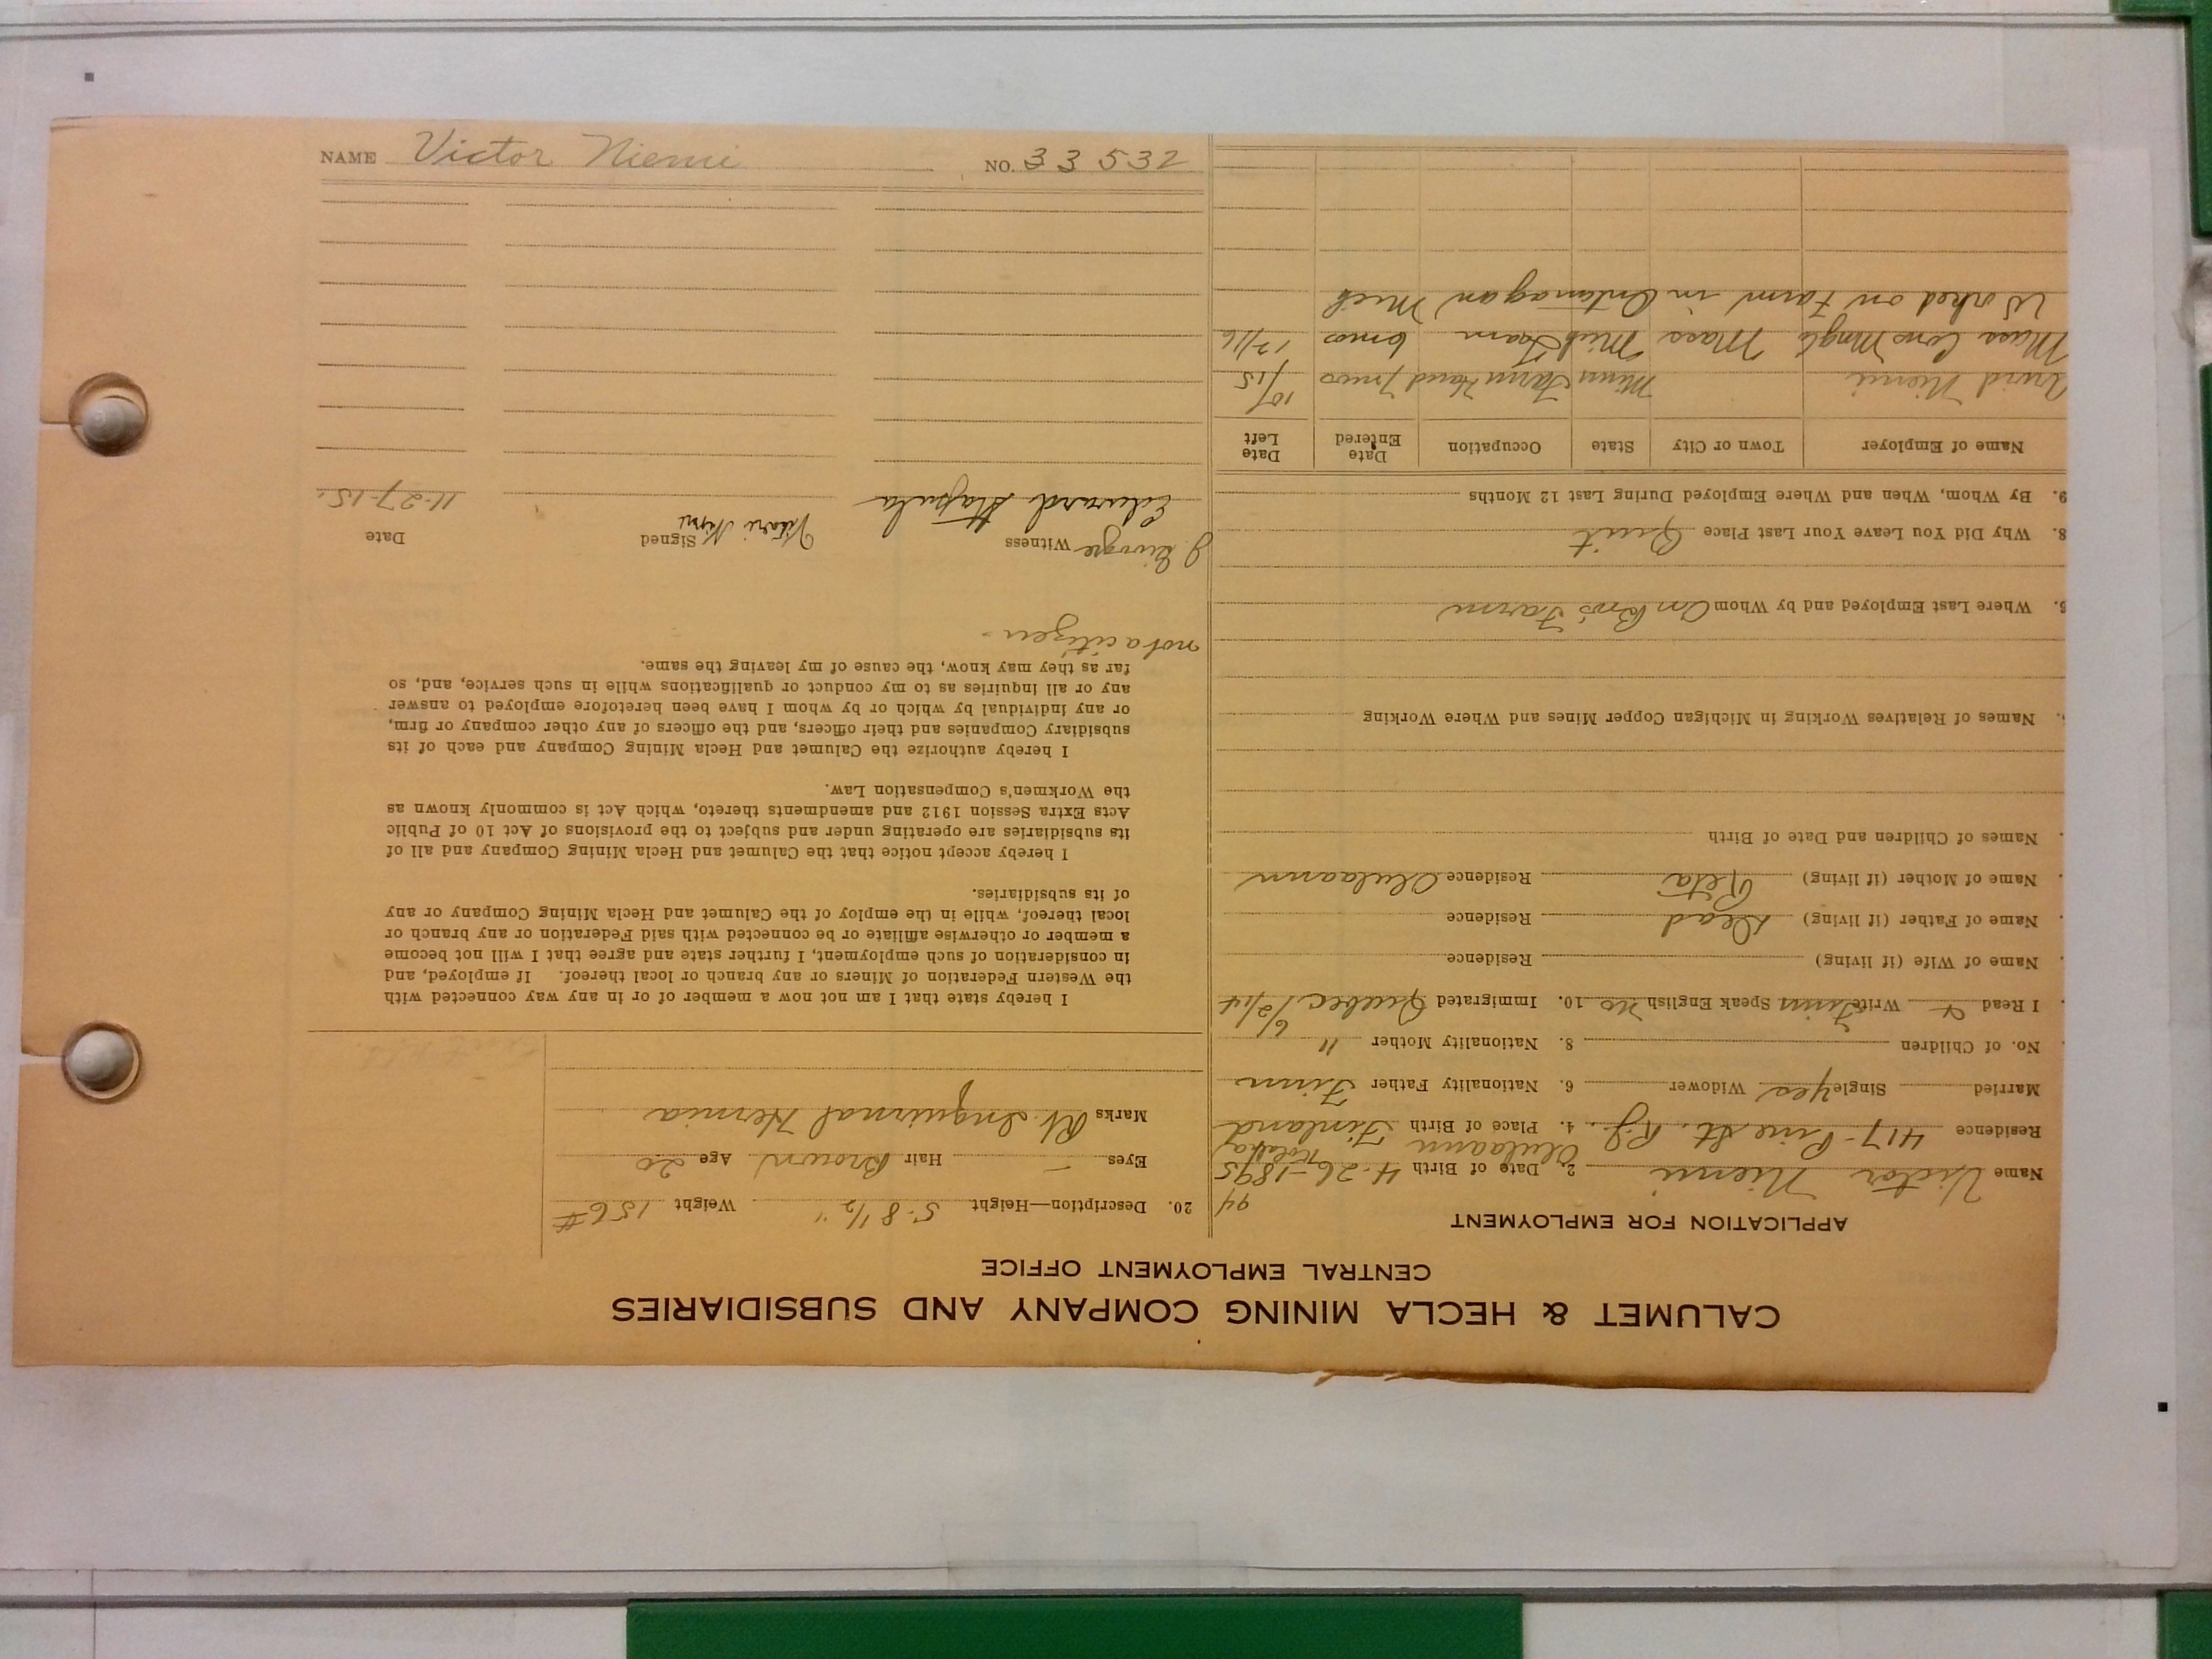 CALUMET & HECLA MINING COMPANY AND SUBSIDIARIES
CENTRAL EMPLOYMENT OFFICE
APPLICATION FOR EMPLOYMENT
94
Name Victor Niemi 2. Date of Birth 4-26-1895
Oulaann
Residence 417-Pine St. 4. Place of Birth Finland
Married Single yes Widower 6. Nationality Father Finn
No. of Children 8. Nationality Mother "
I Read Write Finn Speak English no 10. Immigrated Quebec 6/12/14
Name of Wife (if living) Residence
Name of Father (if living) Dead Residence
Name of Mother (if living) Reta Residence Oulaann
Names of Children and Date of Birth
Names of Relatives Working in Michigan Copper Mines and Where Working
Where Last Employed and by Whom On Bro's Farm
8. Why Did You Leave Your Last Place Quit
9. By Whom, When and Where Employed During Last 12 Months
Name of Employer Town or City State Occupation Date Entered Date Left
Arvid Niemi Minn Farm Hand 7 mos 10/15
Mass Cons Mass Mich Tram 6 mos 12/16
Worked on Farm in Ontanagan Mich
20. Description—Height 5-8 1/2" Weight 156#
Eyes — Hair Brown Age 20
Marks Rt. Inguinal Hernia
I hereby state that I am not now a member of or in any way connected with
the Western Federation of Miners or any branch or local thereof. If employed, and
in consideration of such employment, I further state and agree that I will not become
a member or otherwise affiliate or be connected with said Federation or any branch or
local thereof, while in the employ of the Calumet and Hecla Mining Company or any
of its subsidiaries.
I hereby accept notice that the Calumet and Hecla Mining Company and all of
its subsidiaries are operating under and subject to the provisions of Act 10 of Public
Acts Extra Session 1912 and amendments thereto, which Act is commonly known as
the Workmen's Compensation Law.
I hereby authorize the Calumet and Hecla Mining Company and each of its
subsidiary Companies and their officers, and the officers of any other company or firm,
or any individual by which or by whom I have been heretofore employed to answer
any or all inquiries as to my conduct or qualifications while in such service, and, so
far as they may know, the cause of my leaving the same.
not a citizen
Witness Signed Date
Edward 11-27-15.
NAME Victor Niemi NO. 33532